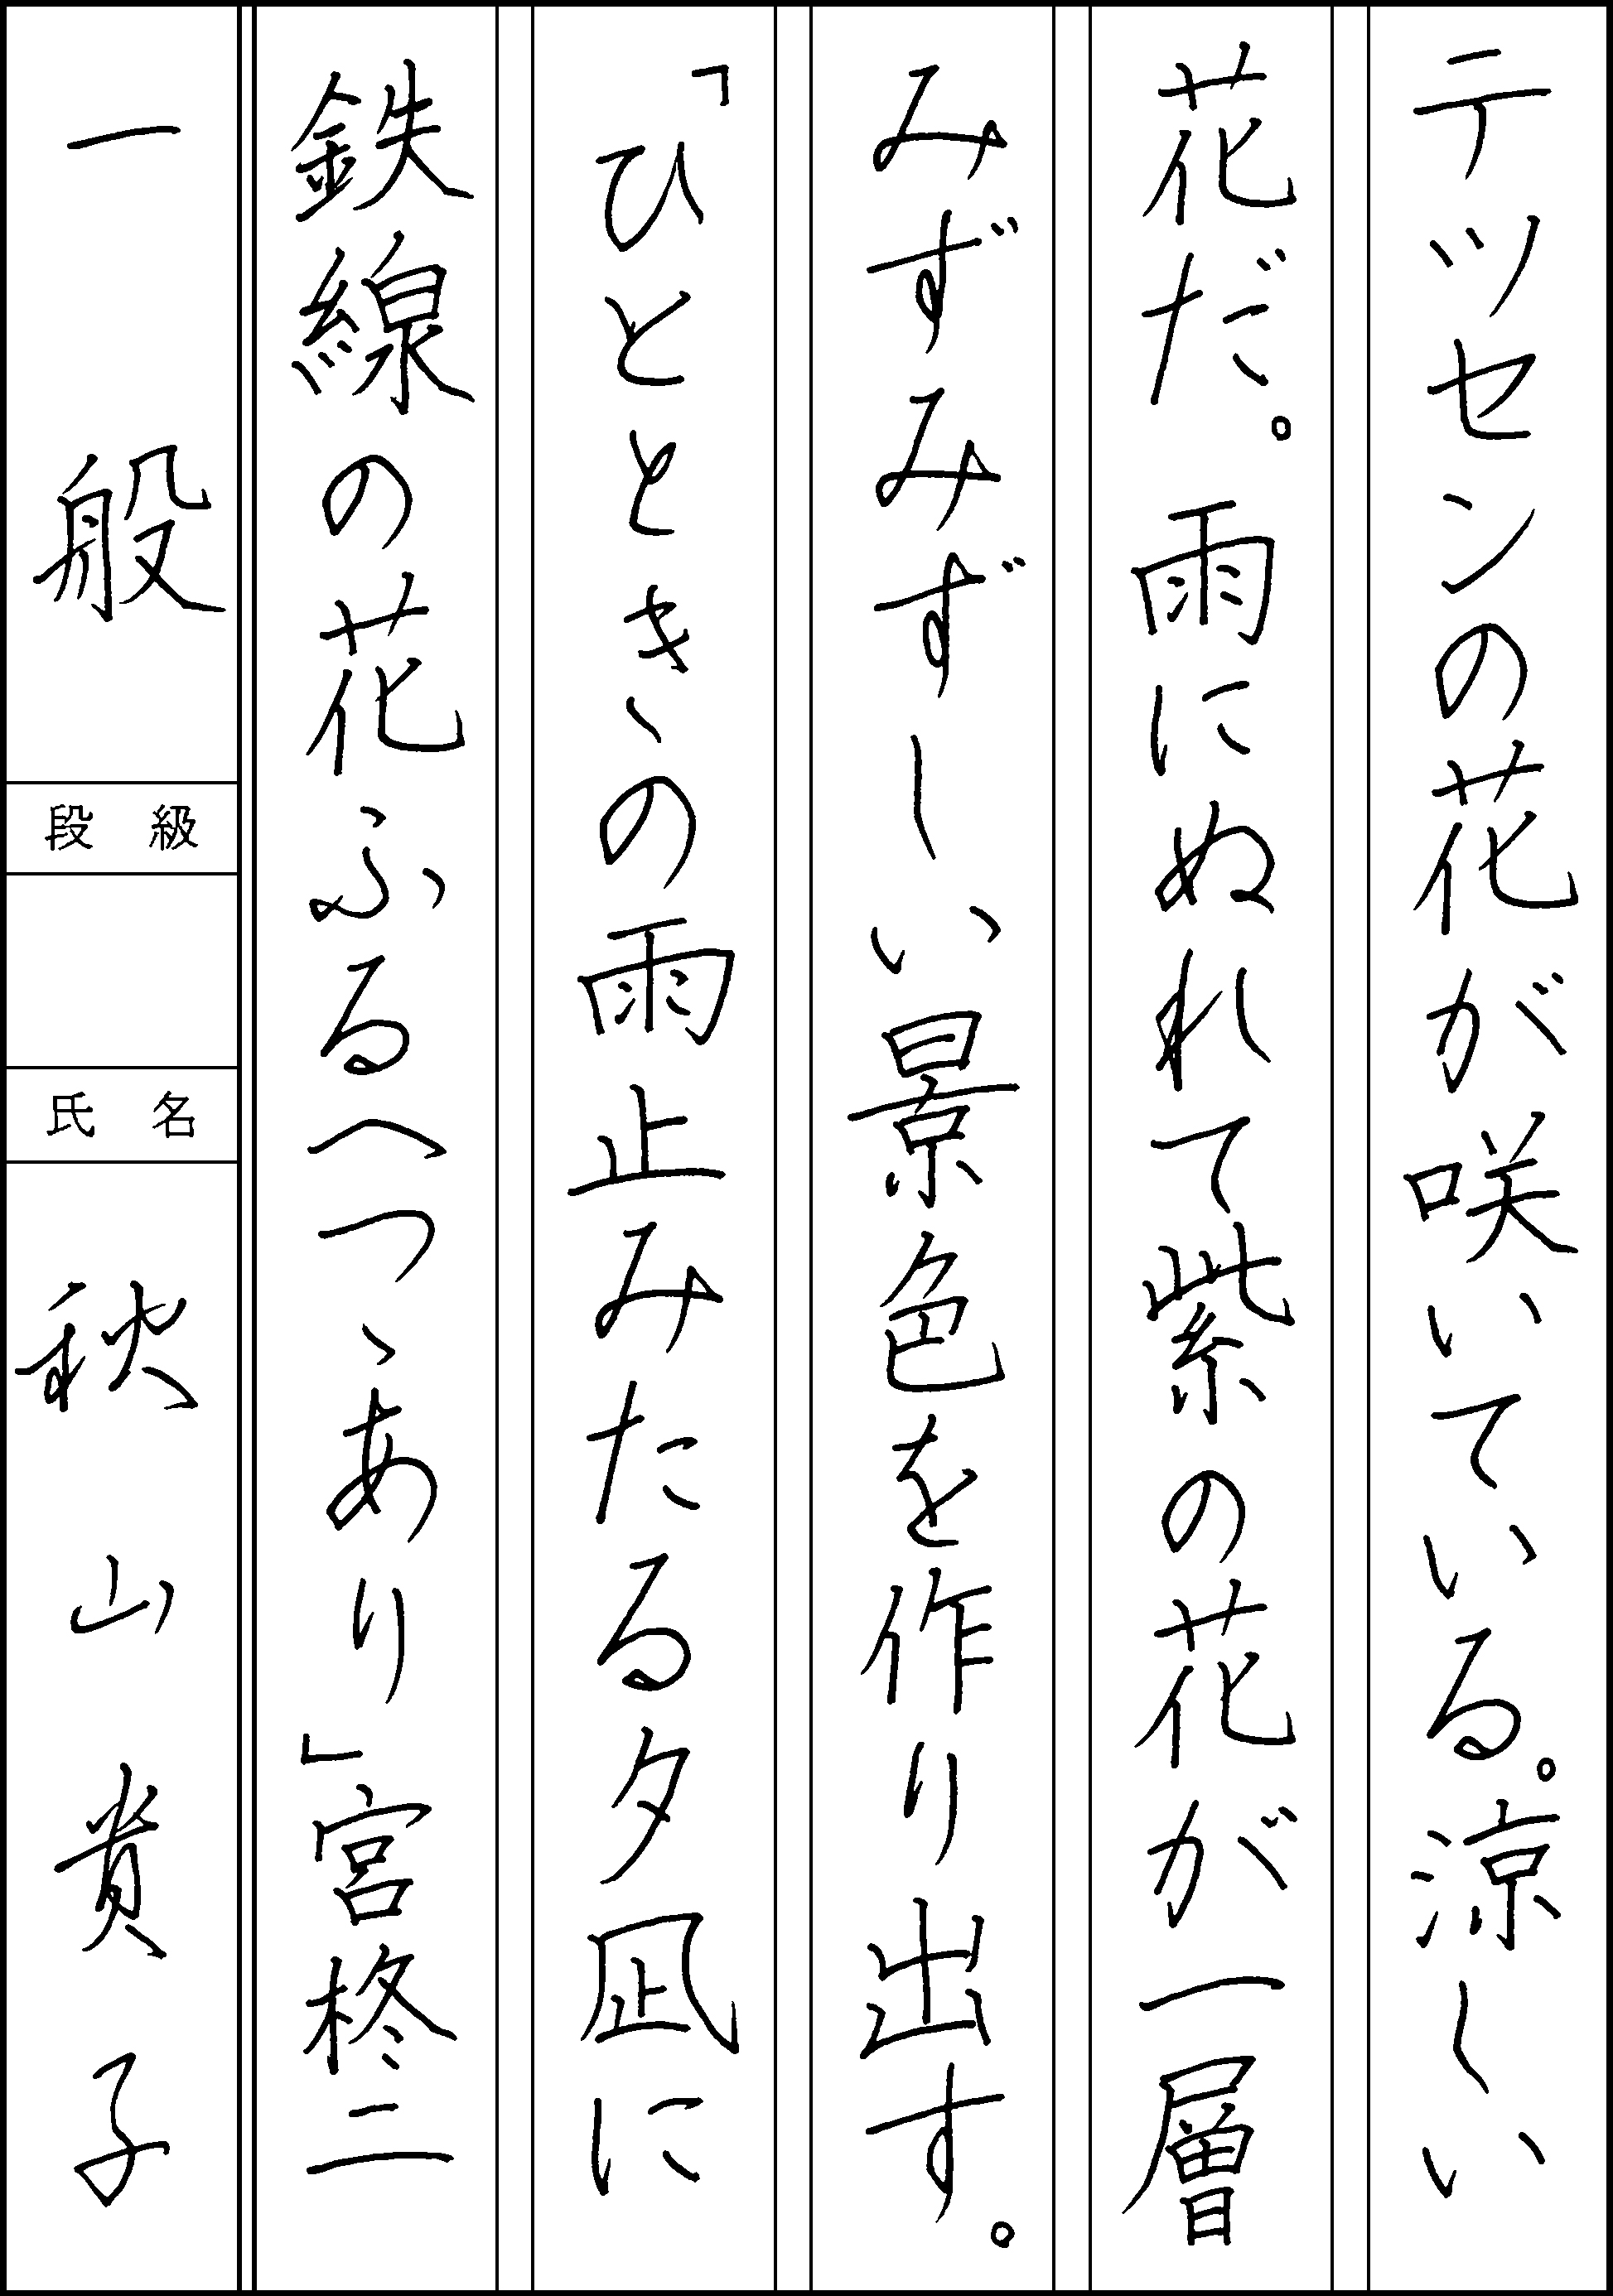 テッセンの花が咲いている。涼しい
花だ。雨にぬれて紫の花が一層
みずみずしい景色を作り出す。
「ひとときゝの雨止みたる夕凪に
鉄線の花ふるへつゝあり」宮柊二
一般
段級
氏名
秋山貴子